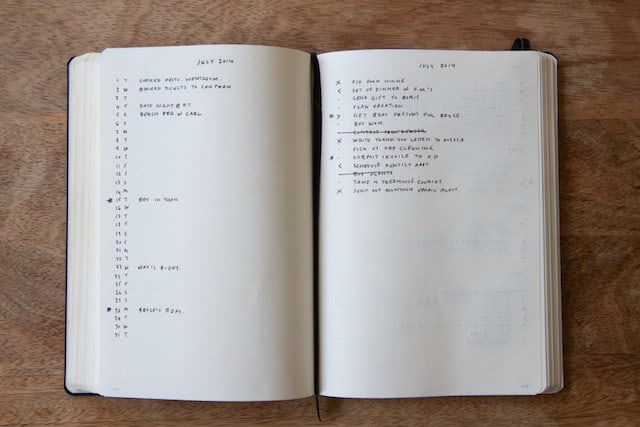 JULY 2014
1 T COOKED PESTO
2 W BOOKED TICKETS TO SAN FRAN
3 T
4 F DATE NIGHT @ F.T.
5 S BEACH BBQ W CARL
6 S
7 M
8 T
9 W
10 T
11 F
12 S
13 S
14 M
* 15 T BEV IN TOWN
16 W
17 T
18 F
19 S
20 S
21 M
22 T
23 W B-DAY.
24 T
25 F
26 S
27 S
* 28 M BDAY.
29 T
30 W
31 T
JULY 2014
X FIX DOOR HINGE
< SET UP DINNER W F.M.'S
- SEND GIFT TO BORIS
- PLAN VACATION
* > GET BDAY PRESENT FOR
- BUY WOK
X WRITE THANK YOU LETTER TO
- PICK UP DRY CLEANING
* - SUBMIT INVOICE TO
< SCHEDULE DENTIST APPT
BUY PLANTS
- TAKE 4 TREEHOUSE COURSES
X SEND OUT MONTHLY EMAIL BLAST